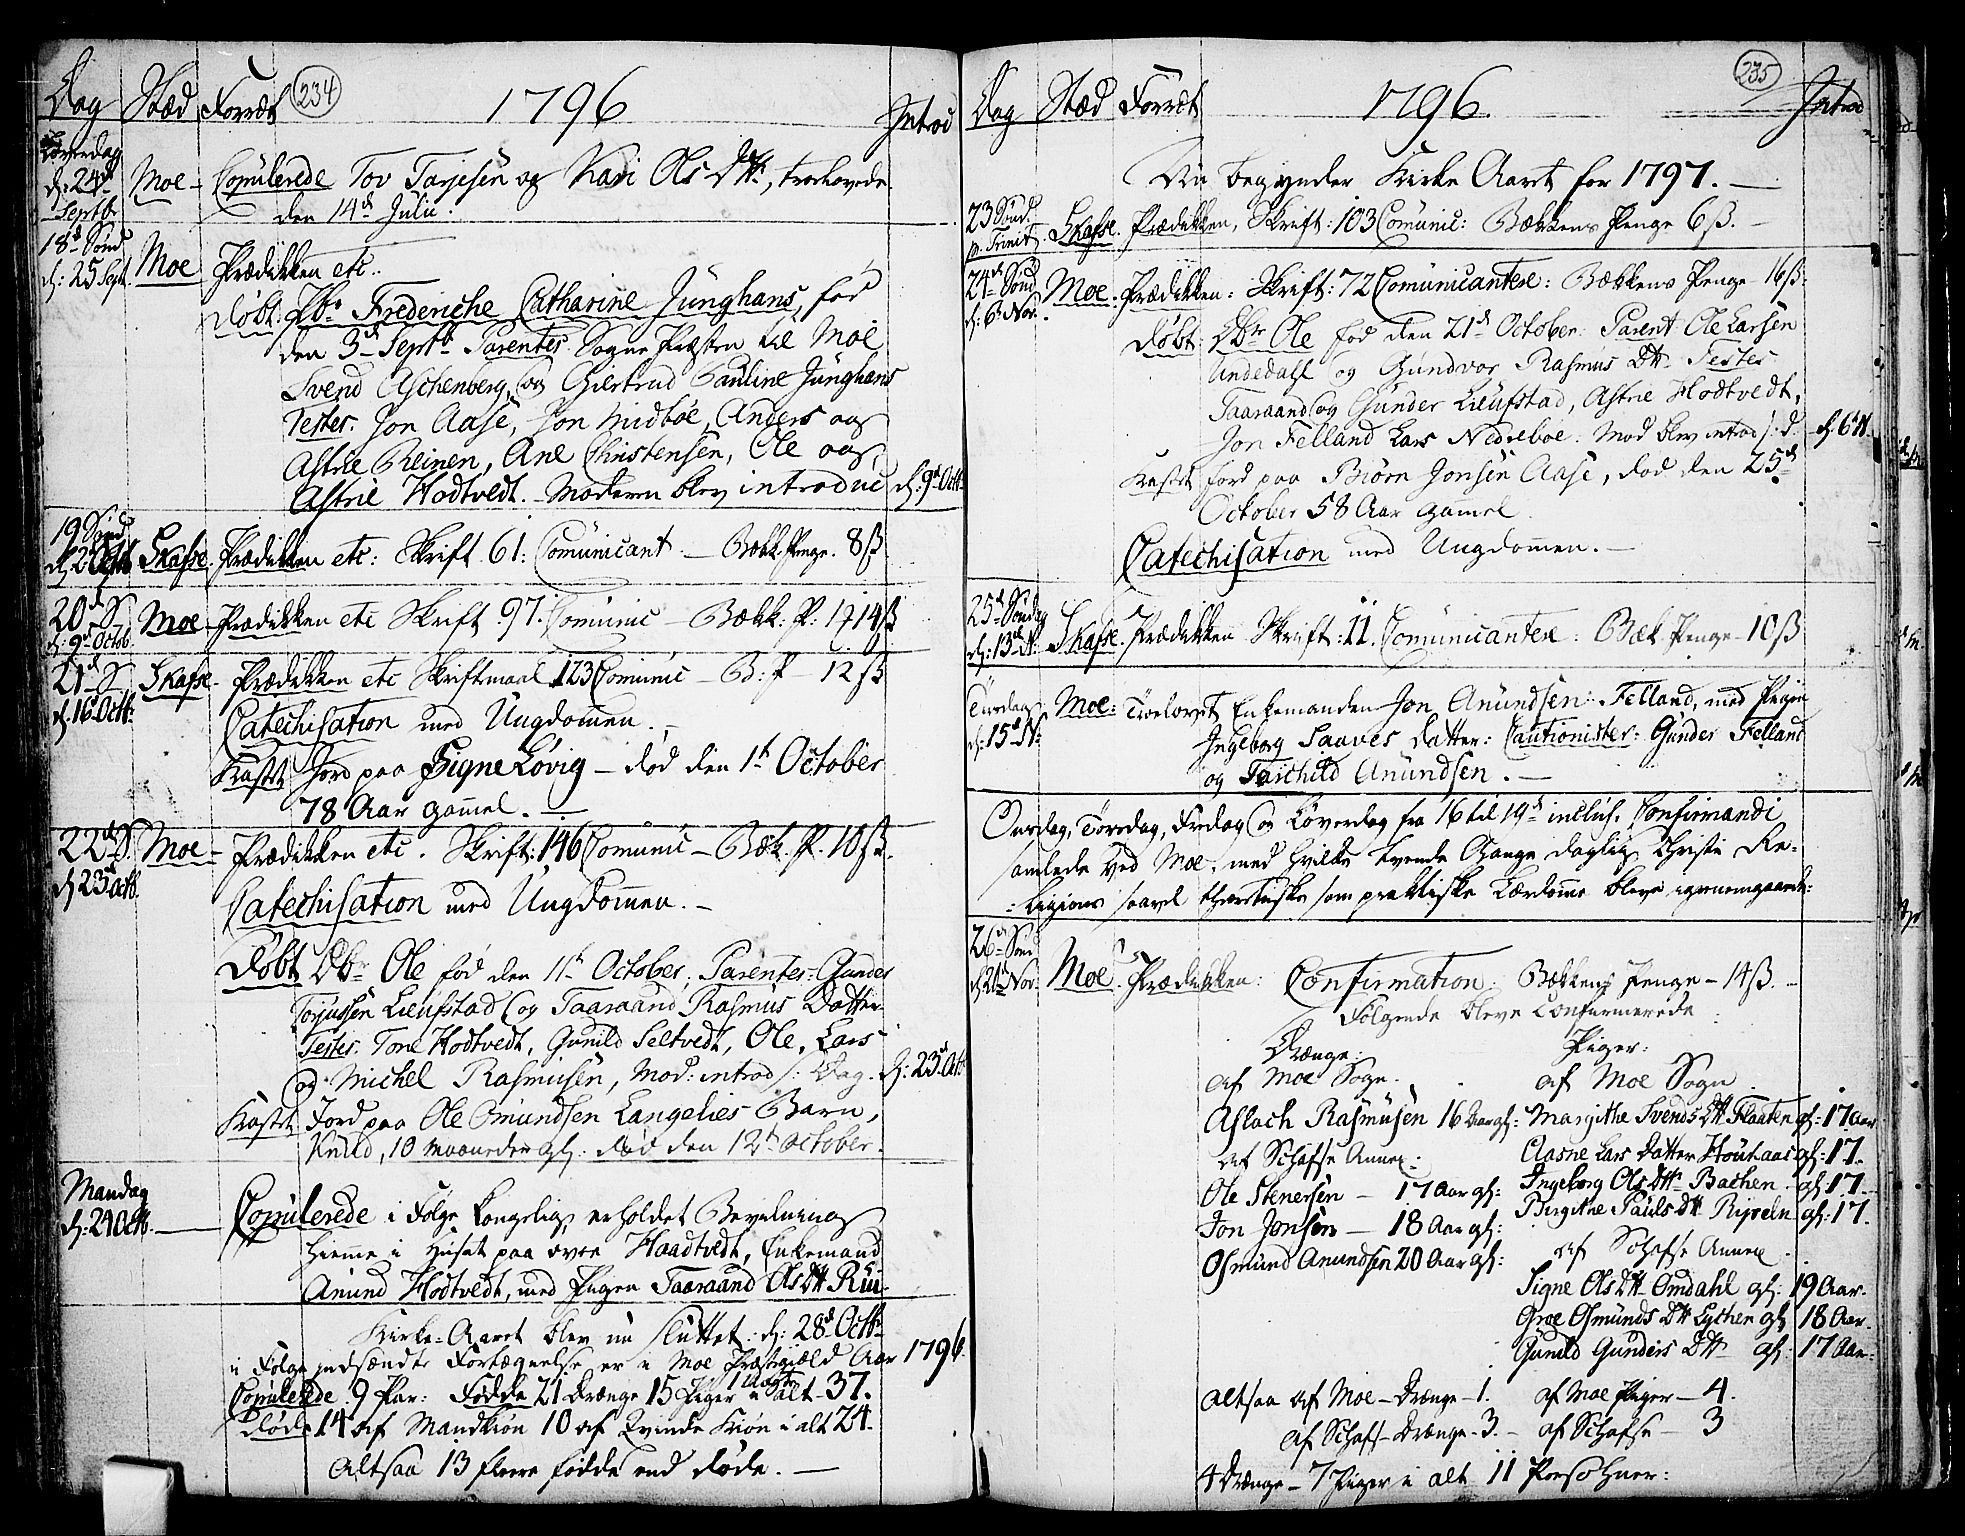 234
Dag Stæd Forret 1796 Introd
Løverdag
d: 24d Septbr Moe - Copulerede Tov Tarjesen og Kari Ols Dttr, trolovede
den 14d Julii.
18d Sønd
d: 25 Sept. Moe Prædikken etc.
Døbt: Pbr Frederiche Catharine Junghans, fød
den 3d Septbr Parentes Sogne Præsten til Moe
Svend Aschenberg, og Giertrud Pauline Junghans
Testes. Jon Aase, Jon Midbøe, Anders og
Astrie Reinen, Ane Christensen, Ole og
Astrie Hodtvedt. Moderen blev introduc d: 9d Octb.
19 Sønd
d: 2 Octb Skafse. Prædikken etc: Skrift 61: Comunicant. - Bækk. Penge. 8ß
20d S
d: 9d Octob. Moe Prædikken etc Skrift. 97. Comunic - Bækk: P: 14ß
21d S
d. 16 Octb: Skafse - Prædikken etc Skriftemaal 123 Comunic - B: P - 12ß
Catechisation med Ungdomen. -
Kastet Jord paa Signe Løvig - død den 1te October
78 Aar gamel. -
22d S.
d 23 Octb. Moe - Prædikken etc. Skrift: 146 Comunic - Bæk. P. 10ß.
Catechisation med Ungdomen. -
Døbt Dbr Ole fød den 11te October, Parentes: Gunder
Torjussen Lieufstad og Taaraand Rasmus Datter
Testes. Tone Hodtvedt, Gunild Seltvedt, Ole, Lars
og Michel Rasmusen, Mod: introd s: Dag. d: 23d Octb
Kastet Jord paa Ole Omundsen Langelies Barn,
Knud, 10 maaneder gl. død den 12te October.
Mandag
d. 24 Octb. - Copulerede i Følge kongelig erholdet Bevilning
hieme i Huset paa øvre Haadtvedt, Enkemand
Anund Hodtvedt, med Pigen Taaraand Ols Dttr Rui-
Kirke-Aaret blev nu sluttet. d: 28d Octb
i Følge indsendte Fortegnelse er i Moe Præstegield Aar 1796.
Copulerede 9 Par: Fødde 21 Drænge 15 Piger 1 i alt - 37.
Døde 14 af Mandkiøn 10 af Qvinde Kiøn i alt 24.
Altsaa 13 fleere fødde end døde. -
235
Dag Stæd Forret 1796. Introd
Nu begynder Kirke Aaret for 1797. -
23 Sønd.
p. Trinit. Skafse. Prædikken, Skrift: 103 Comunic: Bækkens Penge 6ß. -
24d Sønd
d: 6 Nov. Moe. Prædikken: Skrift: 72 Comunicantere: Bækkens Penge - 16ß.
Døbt: Dbr Ole fød den 21d October. Parent Ole Larsen
Undedahl og Gundvor Rasmus Dttr Testes
Taaraand og Gunder Lieufstad, Astrie Hodtvedt,
Jon Felland Lars Nedreboe. Mod blev introd s: d. d: 6 N.
Kastet Jord paa Biørn Jonsen Aase, død den 25d
October 58 Aar gamel.
Catechisation med Ungdommen. -
25d Søndag
d: 13d N: Skafse. Prædikken Skrift: 11. Comunicantere: Bæk. Penge - 10ß
Tirsdag
d: 15d N: Moe: Troelovet Enkemanden Jon Anundsen Felland, med Pigen
Ingeborg Saaves Datter: Cautionister: Gunder Felland
og Tarchild Anundsen. -
Onsdag, Torsdag, Fredag og Løverdag fra 16 til 19d inclus. Confirmandi
samlede ved Moe. med hvilke tvende Gange daglig Christi Re-
:ligions saavel theoretiske som praktiske Lærdomme bleve igiennemgaaede:
26d Sønd
d 21 Nov. Moe. Prædikken: Confirmation. Bækkens Penge - 14ß. -
Følgende bleve Confirmerede
Drænge: Piger:
af Moe Sogn. af Moe Sogn.
Aslach Rasmusen 16 Aar gl: Margithe Svends Dttr Flaaten gl: 17 Aar
af Schafse Annex: Aasne Lars Datter Houhaas gl: 17.
Ole Stenersen - 17 Aar gl: Ingeborg Ols Dttr Bachen. gl: 17.
Jon Jonsen - 18 Aar gl: Birgithe Pauls Dttr gl: 17.
Osmund Anundsen 20 Aar gl: af Schafse Annex.
Signe Ols Dttr Omdahl gl: 19 Aar.
Groe Osmunds Dttr Lythen gl 18 Aar.
Gunild Gunders Dttr gl: 17 Aar.
Altsaa af Moe - Drænge - 1. af Moe Piger - 4.
af Schafs - Drænge - 3. - af Schafse - 3
4 Drænge - 7 Piger i alt 11 Persohner: